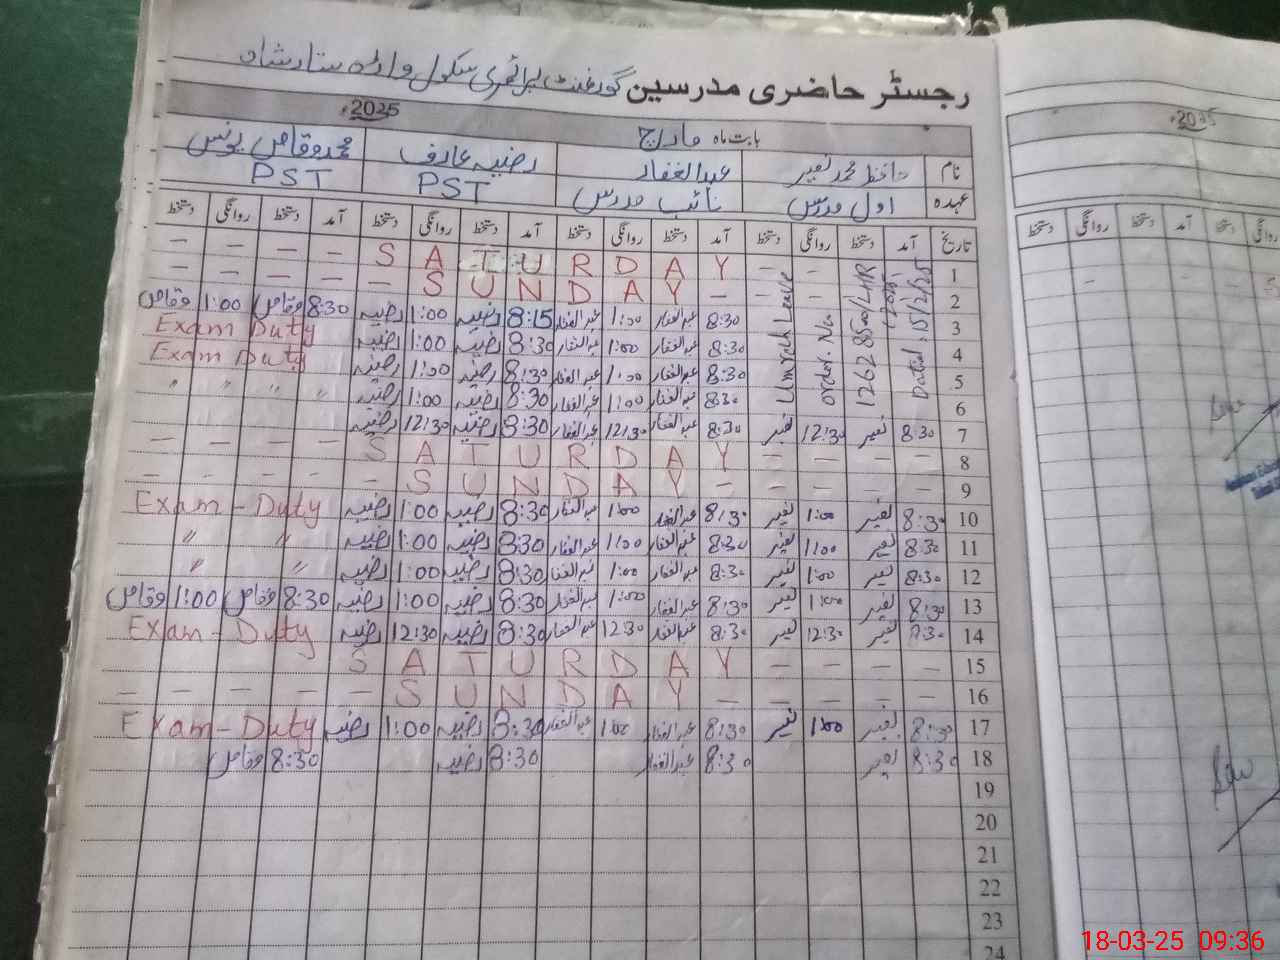 رجسٹر حاضری مدرسین گورنمنٹ پرائمری سکول واڑہ ستار شاہ
بابت ماہ مارچ 2025ء
نام حافظ محمد نصیر عبدالغفار رضیہ عارف محمد وقاص یونس
عہدہ اول مدرس نائب مدرس PST PST
تاریخ آمد دستخط روانگی دستخط آمد دستخط روانگی دستخط آمد دستخط روانگی دستخط آمد دستخط روانگی دستخط
1 – – S A T U R D A Y – – – –
2 – S U N D A Y – – – –
Umrah Leave
order. No
Dated: 15/2/25
3 8:30 عبدالغفار 1:00 عبدالغفار 8:15 رضیہ 1:00 رضیہ 8:30 وقاص 1:00 وقاص
4 8:30 عبدالغفار 1:00 عبدالغفار 8:30 رضیہ 1:00 رضیہ Exam Duty
5 8:30 عبدالغفار 1:00 عبدالغفار 8:30 رضیہ 1:00 رضیہ Exam Duty
6 8:30 عبدالغفار 1:00 عبدالغفار 8:30 رضیہ 1:00 رضیہ " " " "
7 8:30 نصیر 12:30 نصیر 8:30 عبدالغفار 12:30 عبدالغفار 8:30 رضیہ 12:30 رضیہ
8 – – – – S A T U R D A Y – – – –
9 – – – – – S U N D A Y – – – – –
10 8:30 نصیر 1:00 نصیر 8:30 عبدالغفار 1:00 عبدالغفار 8:30 رضیہ 1:00 رضیہ Exam – Duty
11 8:30 نصیر 1:00 نصیر 8:30 عبدالغفار 1:00 عبدالغفار 8:30 رضیہ 1:00 رضیہ " "
12 8:30 نصیر 1:00 نصیر 8:30 عبدالغفار 1:00 عبدالغفار 8:30 رضیہ 1:00 رضیہ " "
13 8:30 نصیر 1:00 نصیر 8:30 عبدالغفار 1:00 عبدالغفار 8:30 رضیہ 1:00 رضیہ 8:30 وقاص 1:00 وقاص
14 8:30 نصیر 12:30 نصیر 8:30 عبدالغفار 12:30 عبدالغفار 8:30 رضیہ 12:30 رضیہ Exam – Duty
15 – – – – S A T U R D A Y
16 – – – – – S U N D A Y – – – – –
17 8:30 نصیر 1:00 نصیر 8:30 عبدالغفار 1:00 عبدالغفار 8:30 رضیہ 1:00 رضیہ Exam – Duty
18 8:30 نصیر 8:30 عبدالغفار 8:30 رضیہ 8:30 وقاص
19
20
21
22
23
24
2025ء
روانگی دستخط آمد دستخط روانگی دستخط
18-03-25 09:36